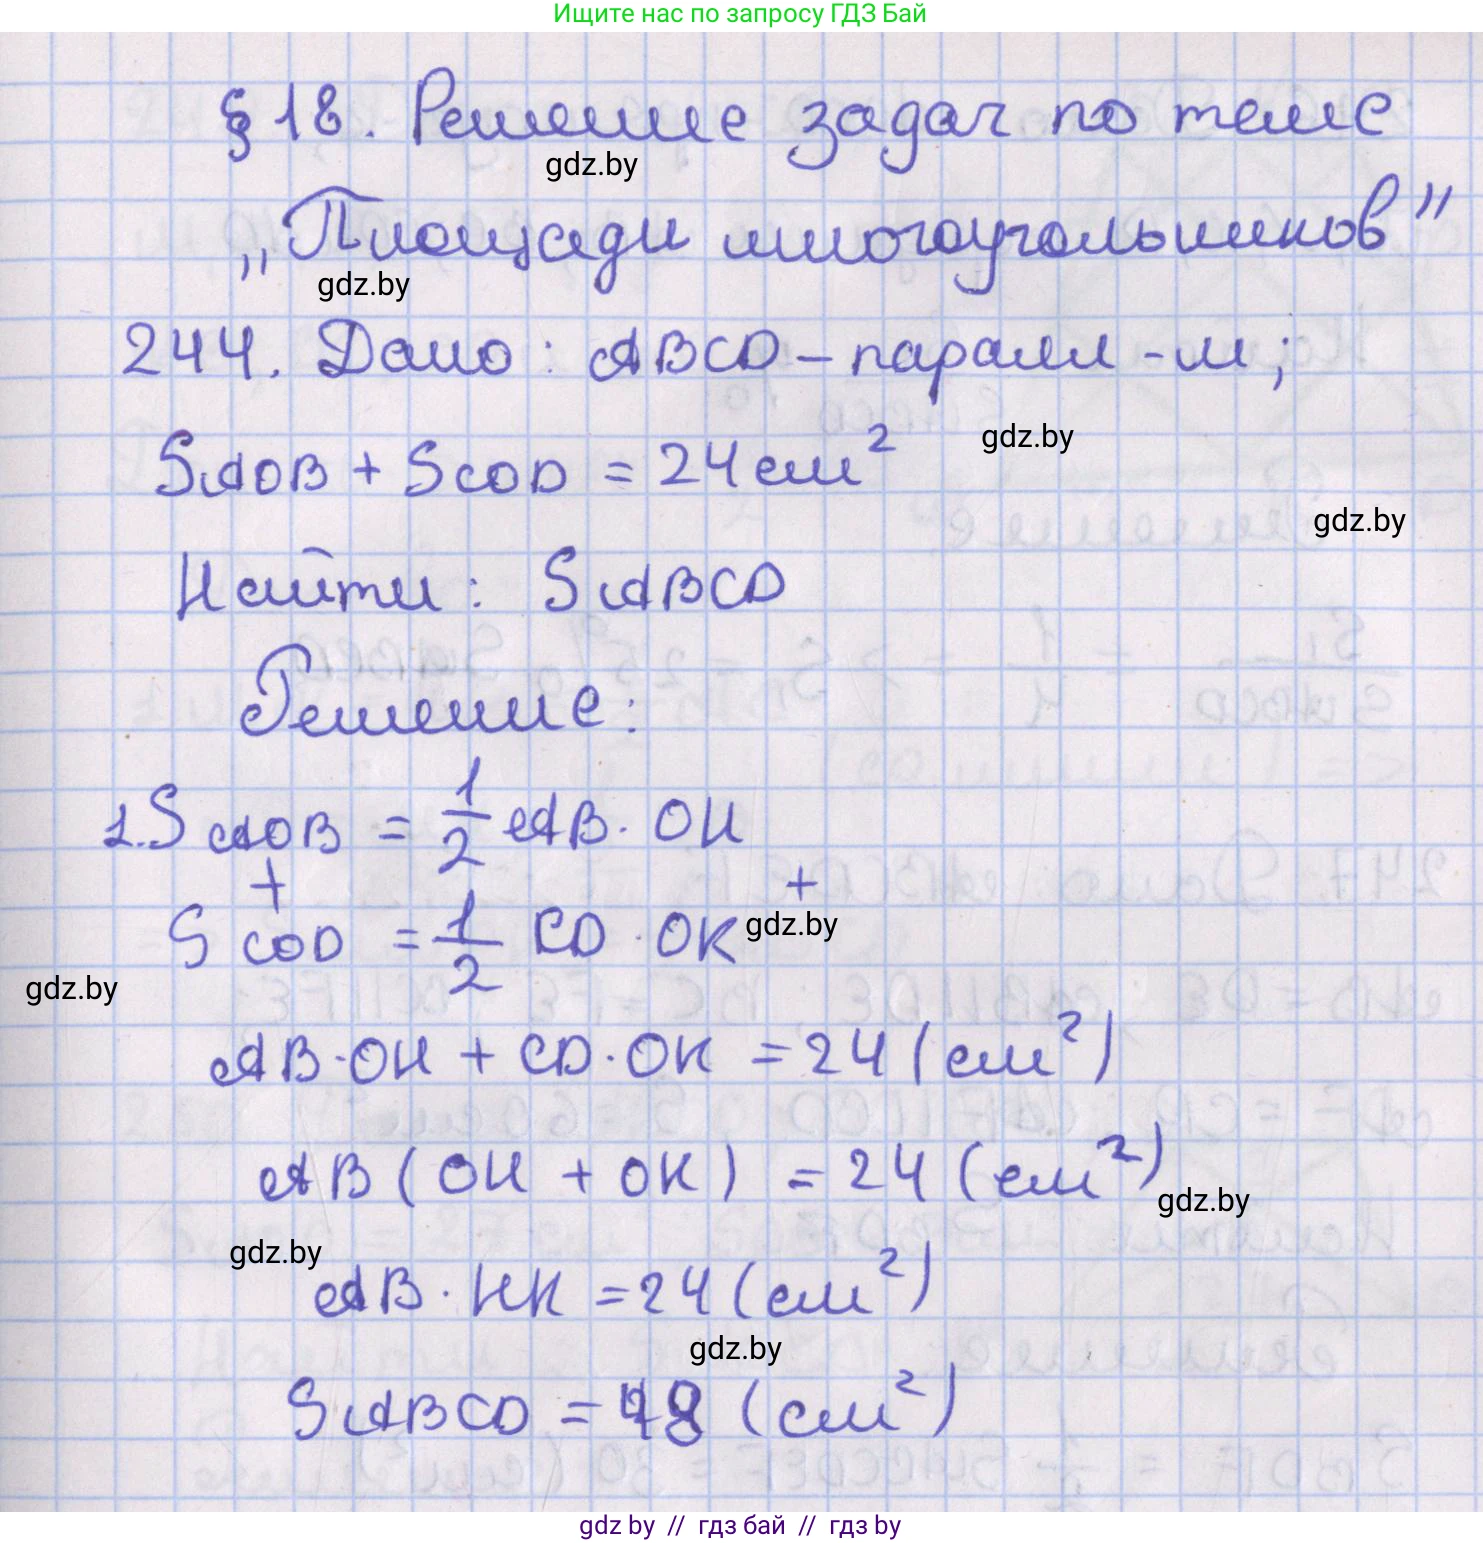 Ищите нас по запросу ГДЗ Бай
§ 18. Решение задач по теме
gdz.by
„Площади многоугольников"
gdz.by
244. Дано: ABCD – паралл-м;
gdz.by
SAOB + SCOD = 24 см²
gdz.by
Найти: SABCD
Решение:
1. SAOB = 1/2 AB · OH
+ +
SCOD = 1/2 CD · OK
gdz.by
gdz.by
AB · OH + CD · OK = 24 (см²)
AB (OH + OK) = 24 (см²)
gdz.by
gdz.by
AB · HK = 24 (см²)
gdz.by
SABCD = 48 (см²)
gdz by // гдз бай // гдз by